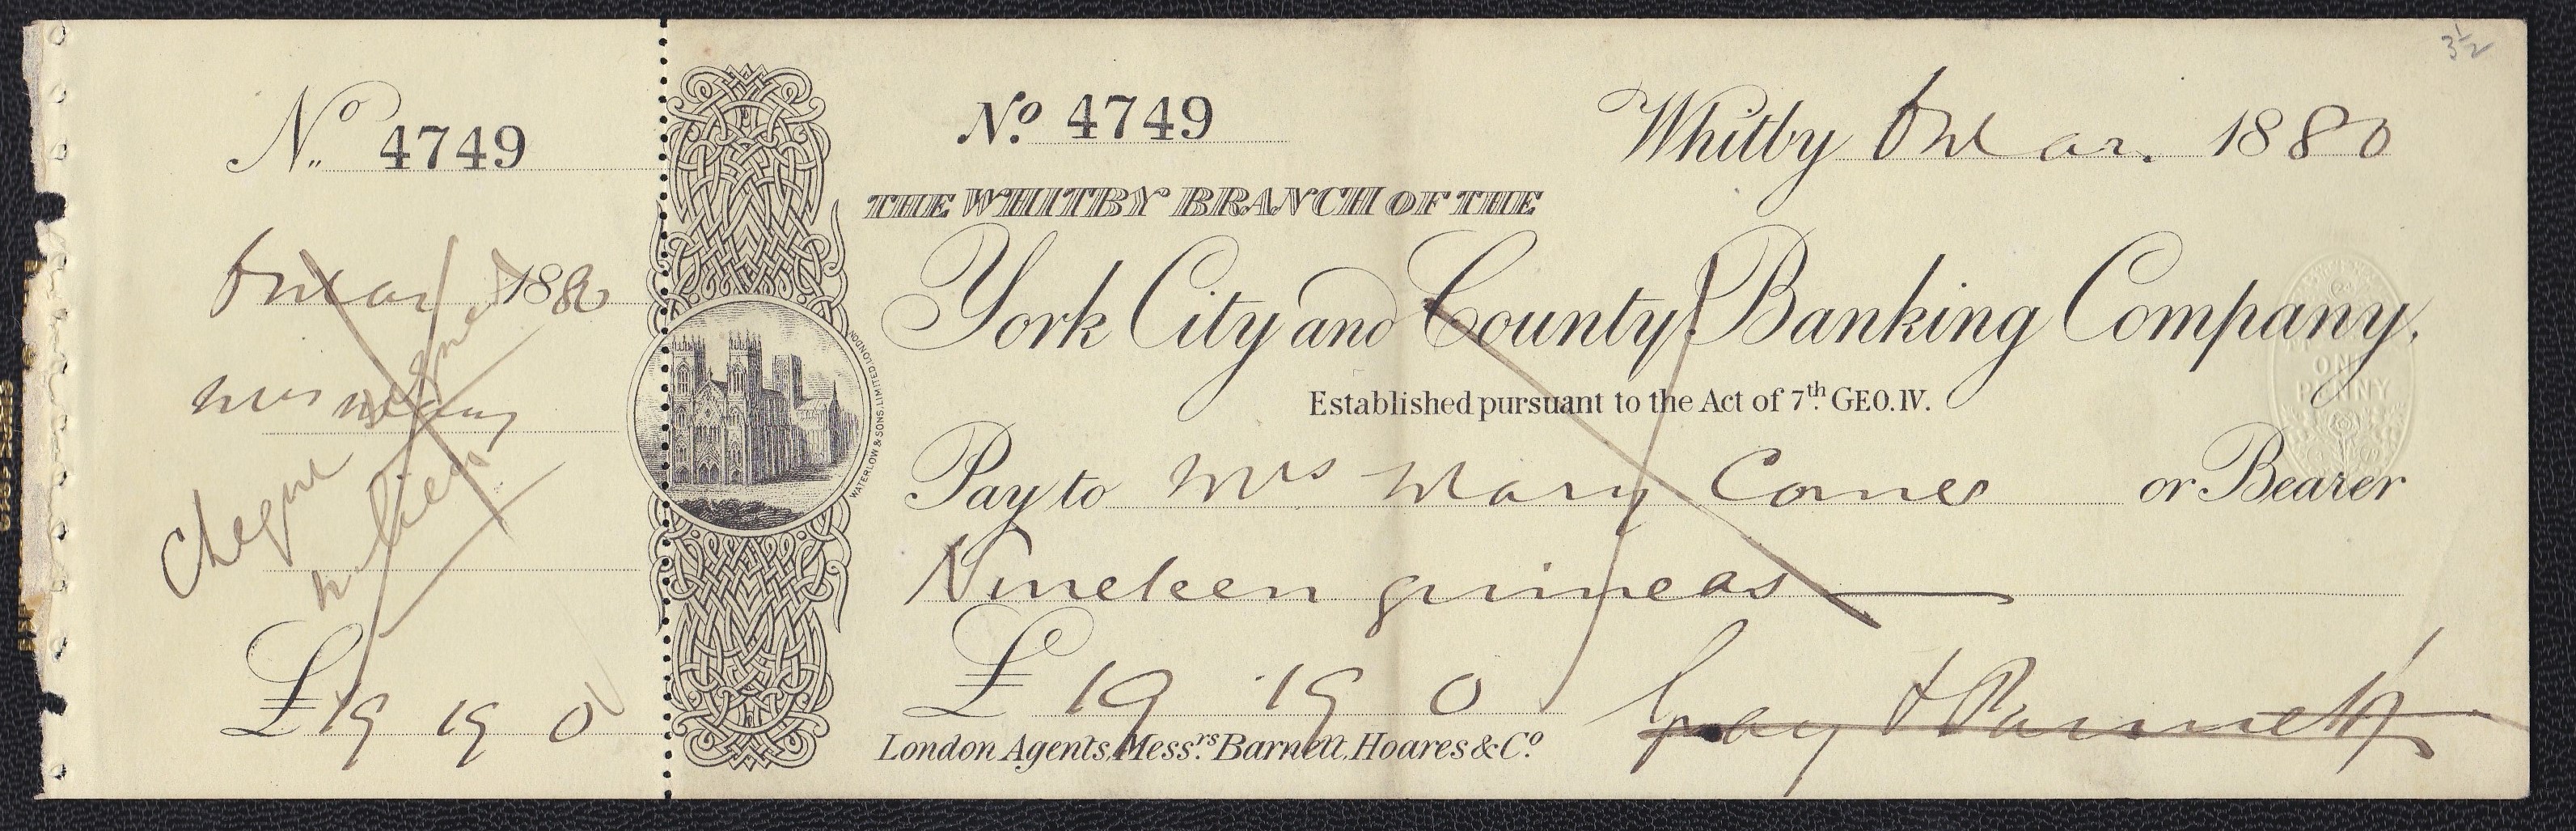 No. 4749
Mar 1880
Mrs Mary
Cheque
£19 19 0
3½
No. 4749
Whitby 6 Mar. 1880
THE WHITBY BRANCH OF THE
York City and County Banking Company.
Established pursuant to the Act of 7th GEO. IV.
Pay to Mrs Mary Corner or Bearer
Nineteen guineas
£ 19 19 0
Gray & Pannett
London Agents, Messrs. Barnett, Hoares & Co.
WATERLOW & SONS, LIMITED LONDON
ONE
PENNY